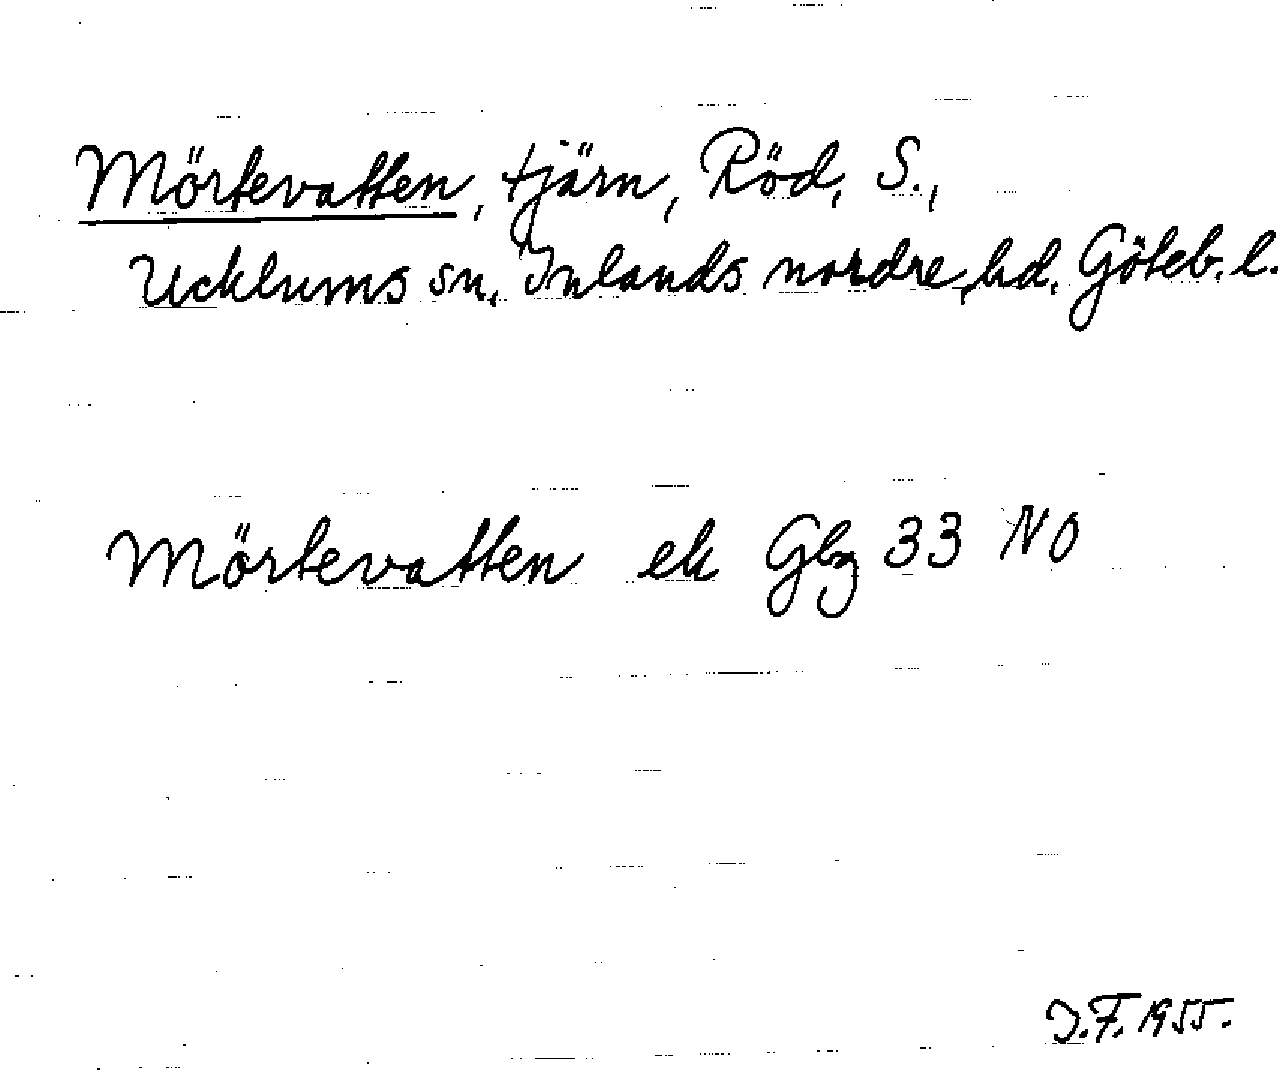 Mörtevatten, tjärn, Röd, S.,
Ucklums sn, Inlands nordre hd, Göteb. l.
Mörtevatten ek Gbg 33 NO
J.F. 1955.